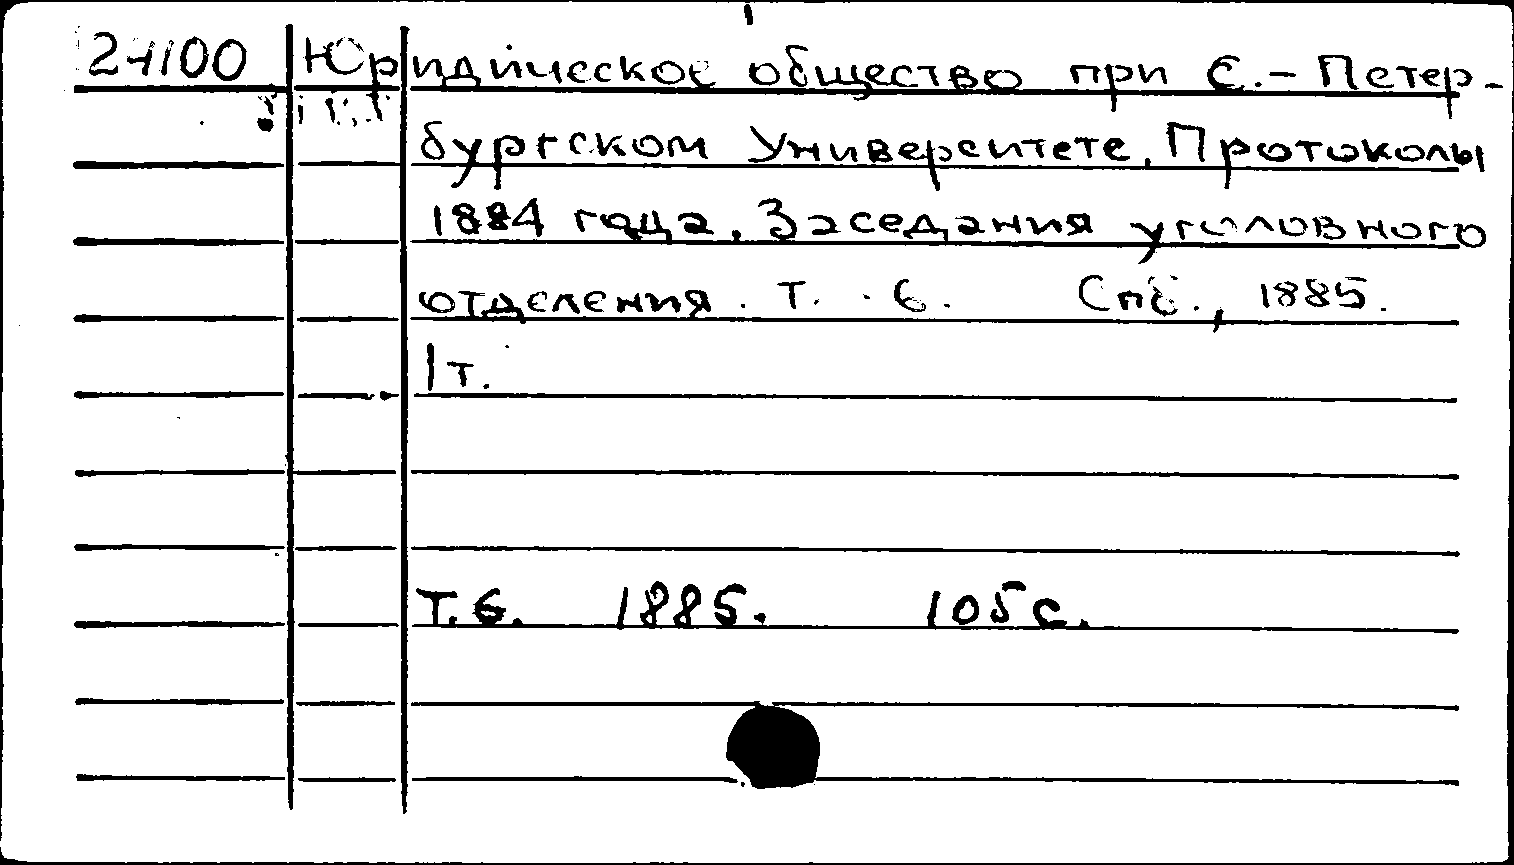 24100 Юридическое общество при С.-Петер-
бургском Университете. Протоколы
1884 года. Заседания уголовного
отделения. Т. 6. Спб., 1885.
1 т.
Т.6. 1885. 105 с.